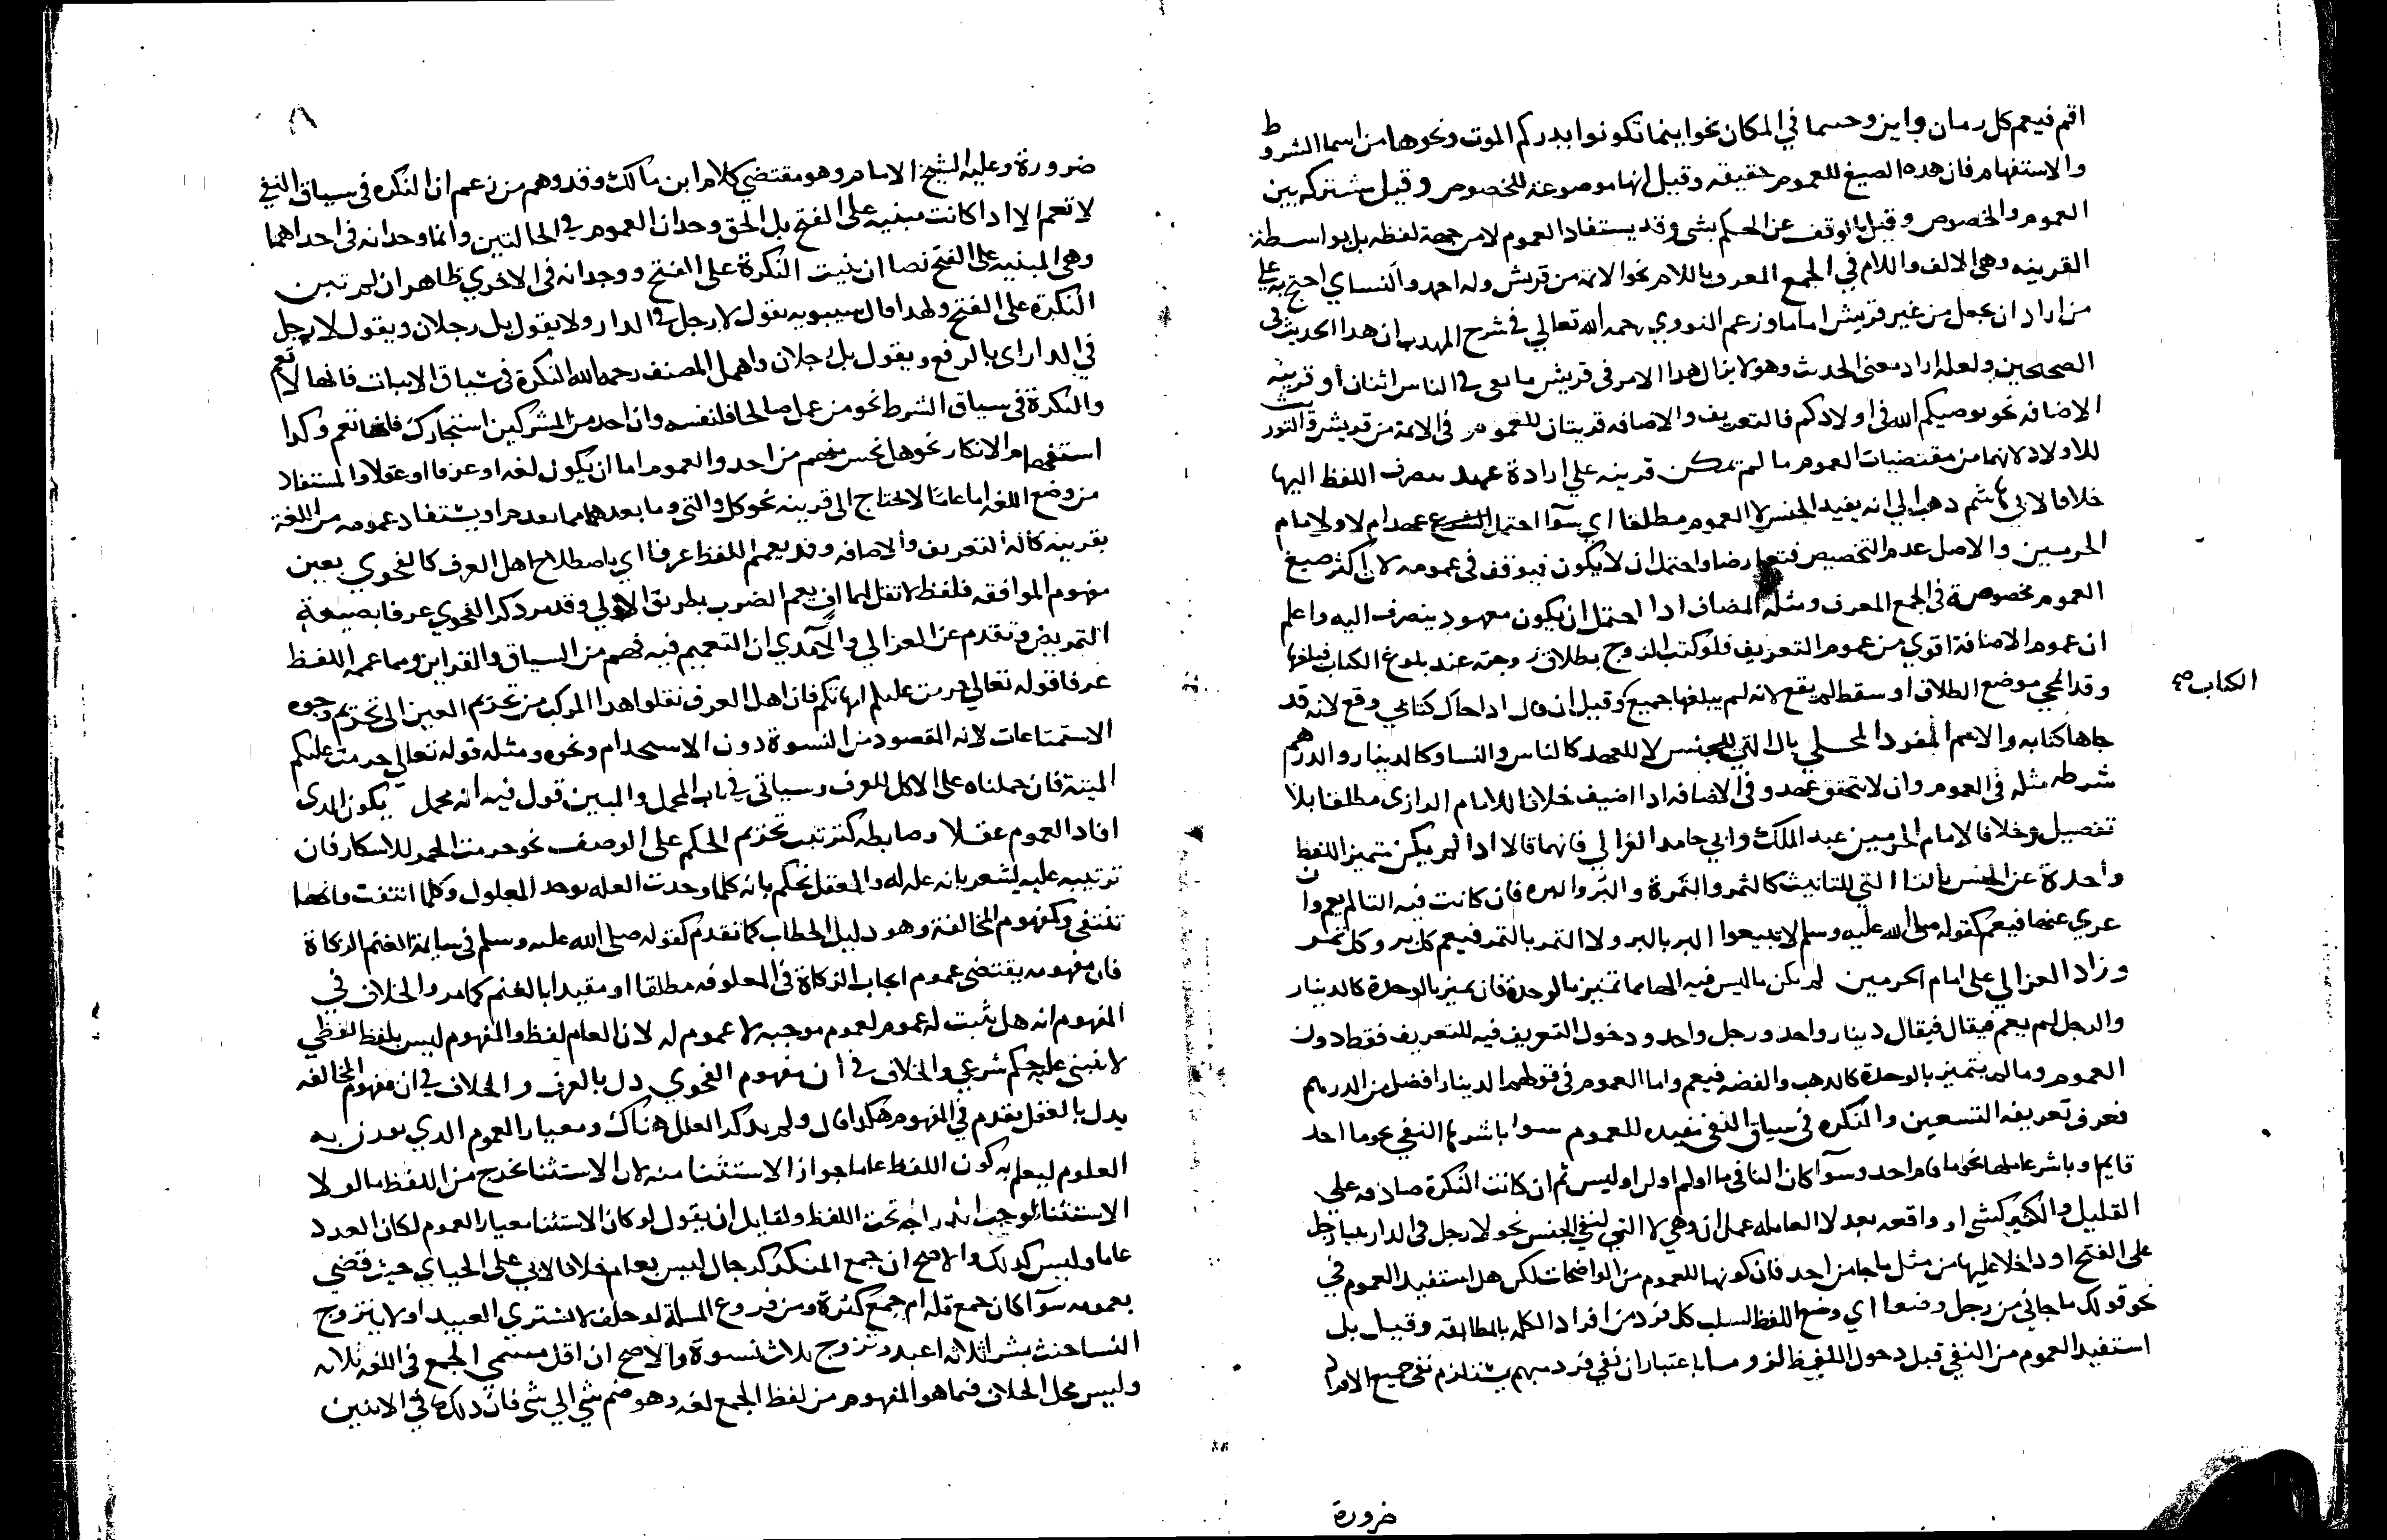 اقم فيعم كل زمان واين وحيثما في المكان نحو اينما تكونوا يدرككم الموت ونحوها من اسما الشروط
والاستفهام فان هذه الصيغ للعموم حقيقه وقيل انها موضوعه للخصوص وقيل مشتركه بين
العموم والخصوص وقيل بالوقف عن الحكم بشي وقد يستفاد العموم لا من جهة لفظه بل بواسطة
القرينه وهي الالف واللام في الجمع المعرف باللام نحو الايمه من قريش وله احمد والنساي احتج به على
من اراد ان يجعل من غير قريش اماما وزعم النووي رحمه الله تعالي في شرح المهدب ان هدا الحديث في
الصحيحين ولعله اراد معنى الحديث وهو لا يزال هدا الامر في قريش ما بقى في الناس اثنان او قرينه
الاضافه نحو يوصيكم الله في اولادكم فالتعريف والاضافه قرينتان للعموم في الايمة من قريش وتوريث
للاولاد لانهما من مقتضيات العموم ما لم تكن قرينه علي ارادة عهد يصرف اللفظ اليها
خلافا لابي هاشم دهب الي انه يفيد الجنس لا العموم مطلقا اي سوآ احتمل عهد ام لا ولامام
الحرمين والاصل عدم التخصيص فتعارضا واحتمل ان لا يكون فيوقف في عمومه لان اكثر صيغ
العموم مخصوصة في الجمع المعرف ومثله المضاف ادا احتمل ان يكون معهود ينصرف اليه واعلم
ان عموم الاضافة اقوي من عموم التعريف فلو كتب الزوج بطلاق زوجته عند بلوغ الكتاب فبلغها
وقد انمحي موضع الطلاق او سقط لم يقع لانه لم يبلغها جميع وقيل ان قال ادا جاك كتابي وقع لانه قد
الكتاب صح
جاها كتابه والاعم المفرد المحلي بال التي للجنس لا للعهد كالناس والنسا وكالدينار والدرهم
شرطه مثله في العموم وان لا يتحقق عهد وفي الاضافه ادا اضيف خلافا للامام الرازي مطلقا بلا
تفصيل وخلافا لامام الحرمين عبد الملك وابي حامد الغزالي فانهما قالا ادا لم يكن متميز اللفظ
واحدة عن الجنس بالتا التي للتانيث كالثمر والثمرة والبر والبره فان كانت فيه التا لم يعم وان
عري عنها فيعم كقوله صلى الله عليه وسلم لا تبيعوا البر بالبر ولا التمر بالتمر فيعم كل بر وكل تمر
وزاد الغزالي على امام الحرمين لم يكن ما ليس فيه الها مما تميز بالوحدة فان تميز بالوحدة كالدينار
والرجل لم يعم فيقال فيقال دينار واحد ورجل واحد ودخول التعريف فيه للتعريف فقط دون
العموم وما لم يتميز بالوحدة كالدهب والفضه فيعم واما العموم في قولهم الدينار افضل من الدرهم
فعرف تعريفه التسعين والنكره في سياق النفي تفيده للعموم سوا باشرها النفي نحو ما احد
قايما او باشر عاملها نحو ما قام احد وسوآ كان النافي ما او لم او لن او ليس ثم ان كانت النكرة صادقه علي
القليل والكثير كشي او واقعه بعد لا العامله عمل ان وهي لا التي لنفي الجنس نحو لا رجل في الدار ببنا رجل
على الفتح او داخلا عليها من مثل ما جا من احد فان كونها للعموم من الواضحات لكن هل استفيد العموم في
نحو قولك ما جاني من رجل وضعا اي وضع اللفظ لسلب كل فرد من افراد الكله بالمطابقه وقيل بل
استفيد العموم من النفي قبل دخول اللفظ لزوما باعتبار ان نفي فرد مبهم يستلزم نفي جميع الافراد
ضرورة
ضرورة وعليه الشيخ الامام وهو مقتضي كلام ابن مالك وقد وهم من زعم ان النكره في سياق النفي
لا تعم الا ادا كانت مبنيه على الفتح بل الحق وجدان العموم في الحالتين وانما وجدانه في احداهما
وهي المبنيه على الفتح نصا ان بنيت النكرة على الفتح ووجدانه في الاخري ظاهر ان لم تبن
النكرة على الفتح ولهدا قال سيبويه تقول لا رجل في الدار ولا يقول بل رجلان ويقول لا رجل
في الدار اي بالرفع ويقول بل رجلان واهمل المصنف رحمه الله النكرة في سياق الاثبات فانها لا تعم
والنكرة في سياق الشرط نحو من عمل صالحا فلنفسه وان احد من المشركين استجارك فانها تعم وكدا
استفهام الانكار نحو هل تحس منهم من احد والعموم اما ان يكون لغه او عرفا او عقلا والمستفاد
من وضع اللغه اما عاما لا يحتاج الى قرينه نحو كل والتي وما بعدهما مما بعد مر او يستفاد عمومه من اللغة
بقرينه كآلة التعريف والاضافه وقد يعمم اللفظ عرفا اي باصطلاح اهل العرف كالفحوي بعين
مفهوم الموافقه فلفظ لا تقل لهما اف يعم الضرب بطريق الاولي وقد مر دكر الفحوي عرفا بصيغة
التمريض وتقدم عن الغزالي والآمدي ان التعميم فيه فهم من السياق والقراين ومما عمه اللفظ
عرفا قوله تعالي حرمت عليكم امهاتكم فان اهل العرف نقلوا هدا المركب من تحريم العين الى تحريم وجوه
الاستمتاعات لانه المقصود من النسوة دون الاستخدام ونحوه ومثله قوله تعالي حرمت عليكم
الميتة فان حملناه على الاكل للعرف وسياتي في باب المجمل والمبين قول فيه انه مجمل يكون الدي
افاد العموم عقلا وضابطه كترتب تحريم الحكم على الوصف نحو حرمت الخمر للاسكار فان
ترتيبه عليه يشعر بانه عله له والعقل يحكم بانه كلما وجدت العله يوجد المعلول وكلما انتفت فانها
تنتفي وكمفهوم المخالفة وهو دليل الخطاب كما تقدم كقوله صلى الله عليه وسلم في سايمة الغنم الزكاة
فان مفهومه يقتضي عموم ايجاب الزكاة في المعلوفه مطلقا او مقيدا بالغنم كما مر والخلاف في
المفهوم انه هل يثبت له عموم لعموم موجبه لا عموم له لان العام لفظ والمفهوم ليس بلفظ لفظي
لا ينبني عليه حكم شرعي والخلاف في ان مفهوم الفحوي دل بالعرف والخلاف في ان مفهوم المخالفه
يدل بالعقل تقدم في المفهوم هكدا قال ولم يدكر العقل هناك ومعيار العموم الدي يوزن به
العلوم ليعلم به كون اللفظ عاما جواز الاستثنا منه لان الاستثنا يخرج من اللفظ ما لولا
الاستثناء لوجب اندراجه تحت اللفظ ولقايل ان يقول لو كان الاستثنا معيار العموم لكان العدد
عاما وليس كدلك والاصح ان جمع المنكر كرجال ليس بعام خلافا لابي علي الجياي حيث قضي
بعمومه سوآ كان جمع قله ام جمع كثرة ومن فروع المسلة لو حلف لا يشتري العبيد او لا يتزوج
النسا حنث بشرا ثلاثه اعبد وتزوج ثلاث نسوة والاصح ان اقل مسمي الجمع في اللغه ثلاثه
وليس محل الخلاف فيما هو المفهوم من لفظ الجمع لغه وهو ضم شي الي شي فان دلك في الاثنين